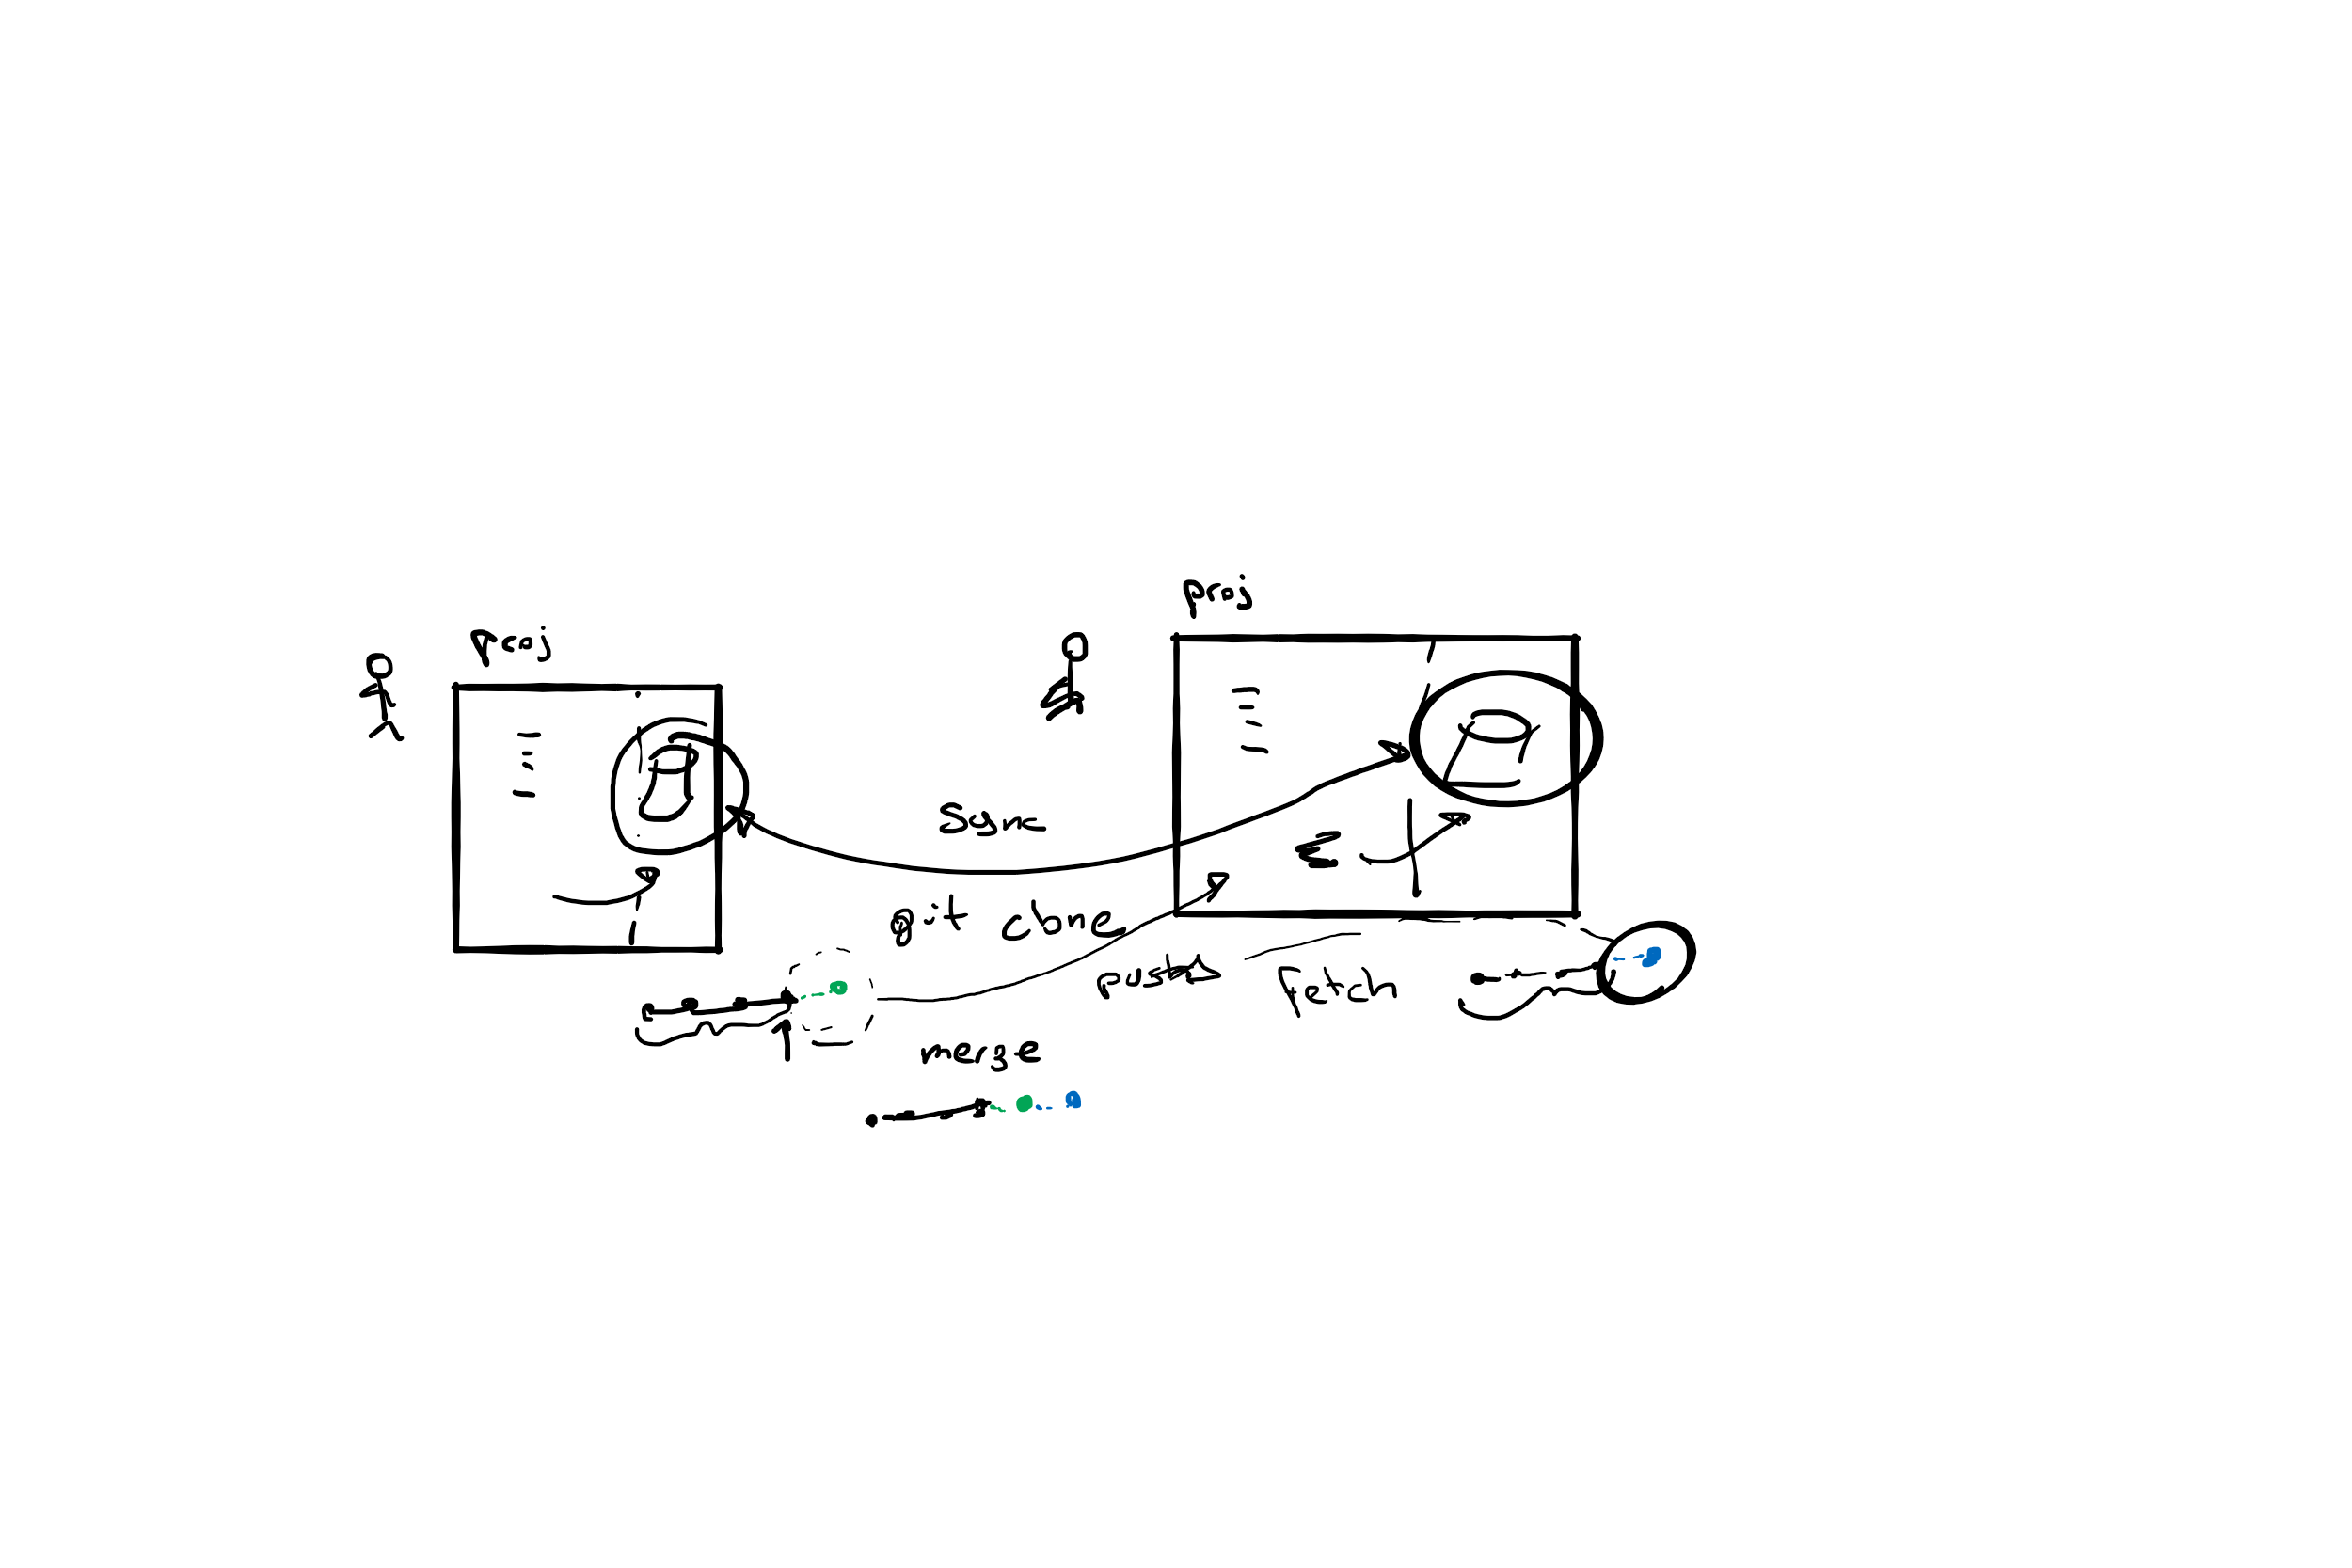 proj
proj
sync
git clone
push
fetch
merge